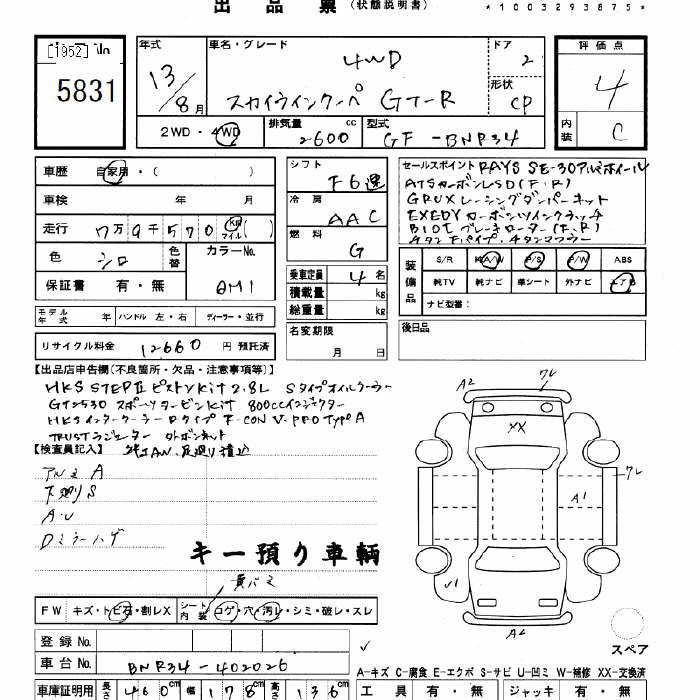 出 品 票 (状態説明書)
*1003293875*
[1952]
5831
年式
13/8月
車名・グレード
4WD
スカイラインクーペ GT-R
ドア
2
形状
CP
評価点
4
内装
C
2WD・4WD
排気量
2600 cc
型式
GF-BNR34
車歴 自家用・( )
車検 年 月
走行 7万9千570 KM マイル ( )
色 シロ 色替
カラーNo.
QM1
保証書 有・無
シフト
F6速
冷房
AAC
燃料
G
乗車定員 4 名
積載量 kg
総重量 kg
セールスポイント RAYS SE-30アルミホイール
ATSカーボンLSD(F,R)
レーシングダンパーキット
EXEDYカーボンツインクラッチ
ブレーキローター(F,R)
チタンFパイプ,チタンマフラー
装備品
S/R 純A/W P/S P/W ABS
純TV 純ナビ 革シート 外ナビ エアB
ナビ型番:
モデル年式 年 ハンドル 左・右 ディーラー・並行
名変期限
月 日
後日品
リサイクル料金 12660 円 預託済
【出品店申告欄(不良箇所・欠品・注意事項等)】
HKS STEPⅡ ピストンKit 2.8L Sタイプオイルクーラー
スポーツタービンKit 800ccインジェクター
HKSインタークーラー Rタイプ F-CON V-PRO TypeA
TRUSTラジエーター
【検査員記入】
アルミ A
下廻りS
A・U
Dミラーハゲ
キー預り車輌
FW キズ・トビ石・割レX シート内装 コゲ・穴・汚レ・シミ・破レ・スレ
登録No.
車台No. BNR34-402026
車庫証明用 長さ 460cm 幅 178cm 高さ 136cm
A2
ワレ
XX
ワレ
A1
A2
スペア
A-キズ C-腐食 E-エクボ S-サビ U-凹ミ W-補修 XX-交換済
工具 有・無 ジャッキ 有・無